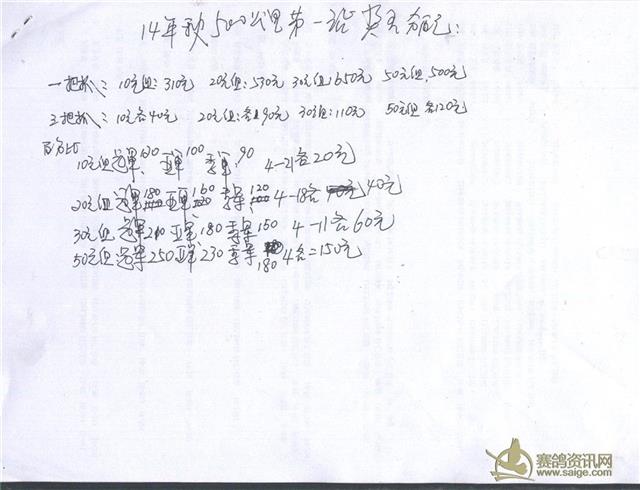 14年秋500公里第一站奖金分配:
一把抓: 10元组: 310元 20元组: 530元 30元组 1650元 50元组, 500元
三把抓: 10元各40元 20元组: 各90元 30元组: 110元 50元组 各120元
百分比
10元组冠军 130 亚军 100 季军, 90 4-21各20元
20元组冠军 180 亚军 160 季军 120 4-18各40元
30元组冠军210 亚军180 季军150 4-11各60元
50元组冠军250亚军230季军180 4名=150元
赛鸽资讯网
www.saige.com